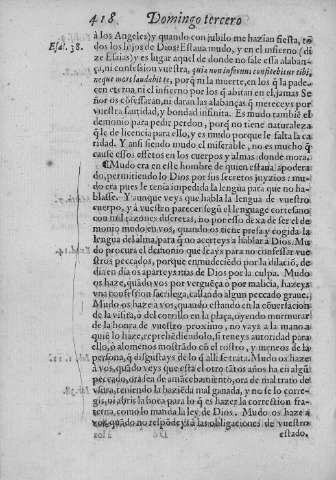 418 Domingo tercero
à los Angeles) y quando con jubilo me hazian fiesta, to
Esa. 38. dos los hijos de Dios! Estaua mudo, y en el infierno (di
ze Esaias) y es lugar aquel de donde no sale essa alaban-
ça, ni confession vuestra, quia non infernus confitebitur tibi,
neque mors laudabit te, porq̃ ni la muerte, en los q̃ la pade-
cen eterna, ni el infierno, en los q̃ abitan en el, jamas Se
ñor os cõfessarán, ni daran las alabanças q̃ mereceys por
vuestra santidad, y bondad infinita. Es mudo tambiẽ el
demonio para pedir perdon, porq̃ ni tiene naturaleza
q̃ le de licencia para ello, y es mudo porque le falta la ca
ridad. Y ansi siendo mudo el miserable, no es mucho q̃
cause essos effetos en los cuerpos y almas donde mora.
Mudo era en este hombre de quien estauia apodera
do, permitiendolo Dios por sus secretos juyzios: mu-
do era pues le tenia impedida la lengua para que no ha-
blasse. Y aunque veys que habla la lengua de vuestro
cuerpo, y à vuestro parecer segũ el lenguage cortesano
con mil razones discretas, no por esso dexa de ser el de
monio mudo en vos, quando os tiene presa y cogida la
lengua del alma, para q̃ no acerteys a hablar à Dios. Mu
do procura el demonio que seays para no confessar vue
stros peccados, porque enmudeciendo por la dilaciõ, de
dia en dia os aparteys mas de Dios por la culpa. Mudo
os haze, quãdo vos por verguẽça o por malicia, hazeys
vna confession sacrilega, callando algun peccado graue.
Mudo os haze a vos, quando estando en la cõuersacion
de la visita, o del corrillo en la plaça, oyendo murmurar
de la honra de vuestro proximo, no vays a la mano a
quiẽ lo haze, reprehẽdiendolo, si teneys autoridad para
ello, ò alomenos mostrãdo cõ el rostro, y meneos de la
persona, q̃ disgustays de lo q̃ alli se trata. Mudo os haze
à vos, quãdo veys que està el otro tãtos años ha en algũ
peccado, ora sea de amãcebamiẽto, ora de mal trato de
vsura, teniendo la haziẽda mal ganada, y no se lo corre-
gis, ni abris la boca para lo q̃ es hazer la correction fra-
terna, como lo manda la ley de Dios. Mudo os haze à
vos, quando no respõdeys à las obligaciones de vuestro
estado.